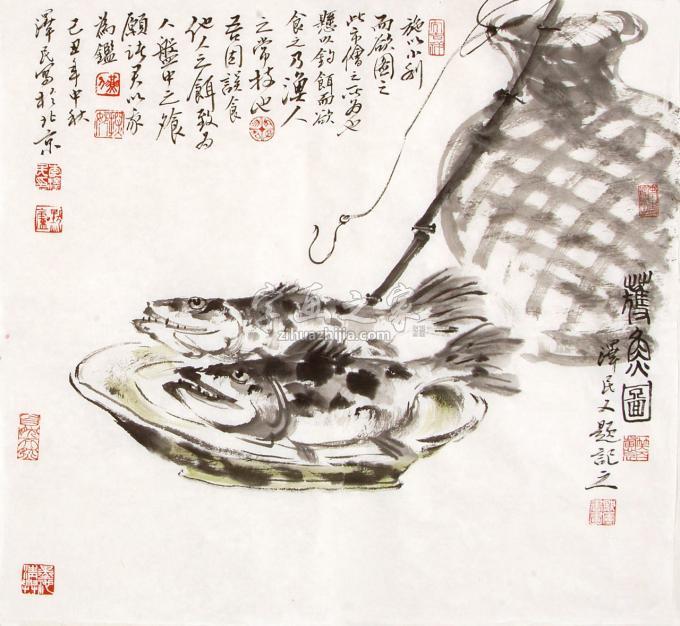 施以小利
而欲图之
此市僧之所为也
懸以釣餌而欲
食之乃漁人
之常技也
若因誤食
他人之餌致为
人盤中之飱
願諸君以家
為鑑
己丑年中秋
澤民寫於北京
獲魚圖
澤民又題記之
字画之家
zihuazhijia.com